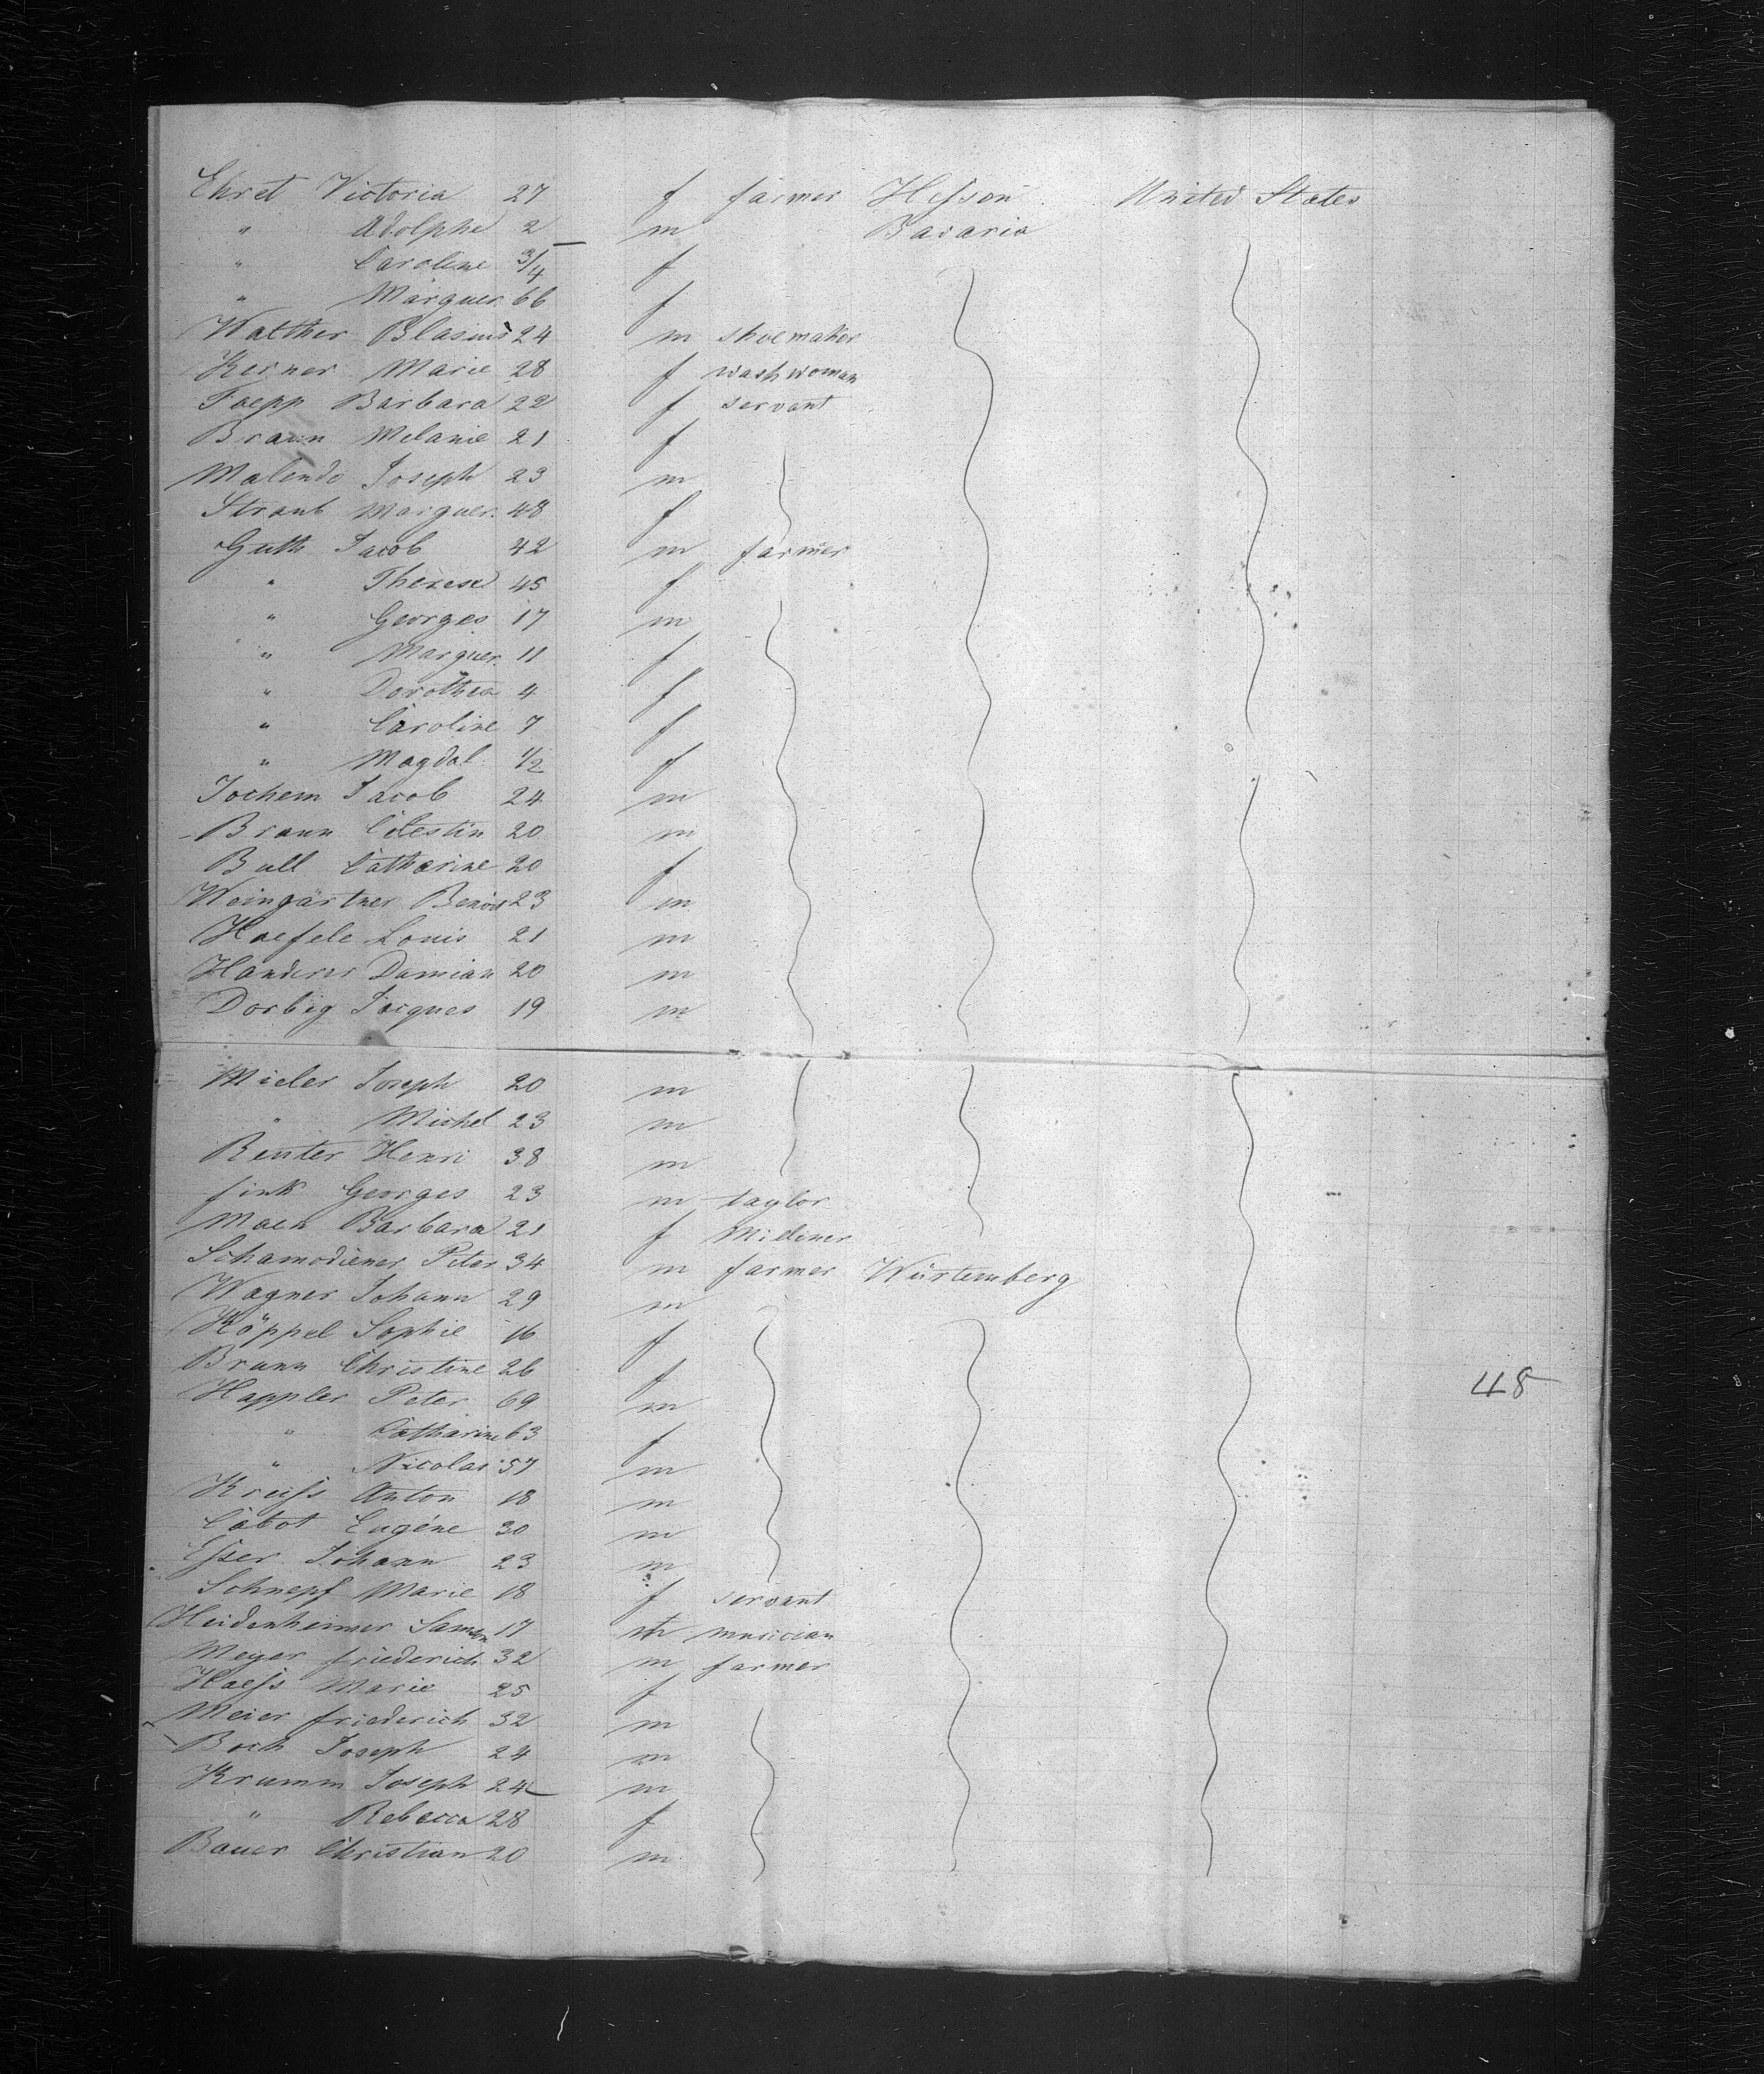 Ehret Victoria 27 f farmer Hessen United States
" Adolphe 2 m Bavaria
" Caroline 3/4 f
" Marguer. 66 f
Walther Blasius 24 m shoemaker
Kerner Marie 28 f washwoman
Foepp Barbara 22 f servant
Braun Melanie 21 f
Malendo Joseph 23 m
Straub Marguer. 48 f
Guth Jacob 42 m farmer
" Therese 45 f
" Georges 17 m
" Marguer. 11 f
" Dorothea 4 f
" Caroline 7 f
" Magdal. 1/2 f
Jochem Jacob 24 m
Braun Celestin 20 m
Bull Catharine 20 f
Weingärtner Benoit 23 m
Haefele Louis 21 m
Damian 20 m
Dorbeg Jacques 19 m
Mieler Joseph 20 m
" Michel 23 m
Reuter Henri 38 m
fink Georges 23 m taylor
Barbara 21 f Milliner
Schamodiener Peter 34 m farmer Würtemberg
Wagner Johann 29 m
Köppel Sophie 16 f
Braun Christine 26 f
Happler Peter 69 m 48
" Catharine 63 f
" Nicolas 57 m
Kreiss Anton 18 m
Cabot Eugéne 30 m
Esser Johann 23 m
Schnepf Marie 18 f servant
Heidenheimer Samson 17 m musician
Meyer friederich 32 m farmer
Haess Marie 25 f
Meier friederich 32 m
Boch Joseph 24 m
Krumm Joseph 24 m
" Rebecca 28 f
Bauer Christian 20 m